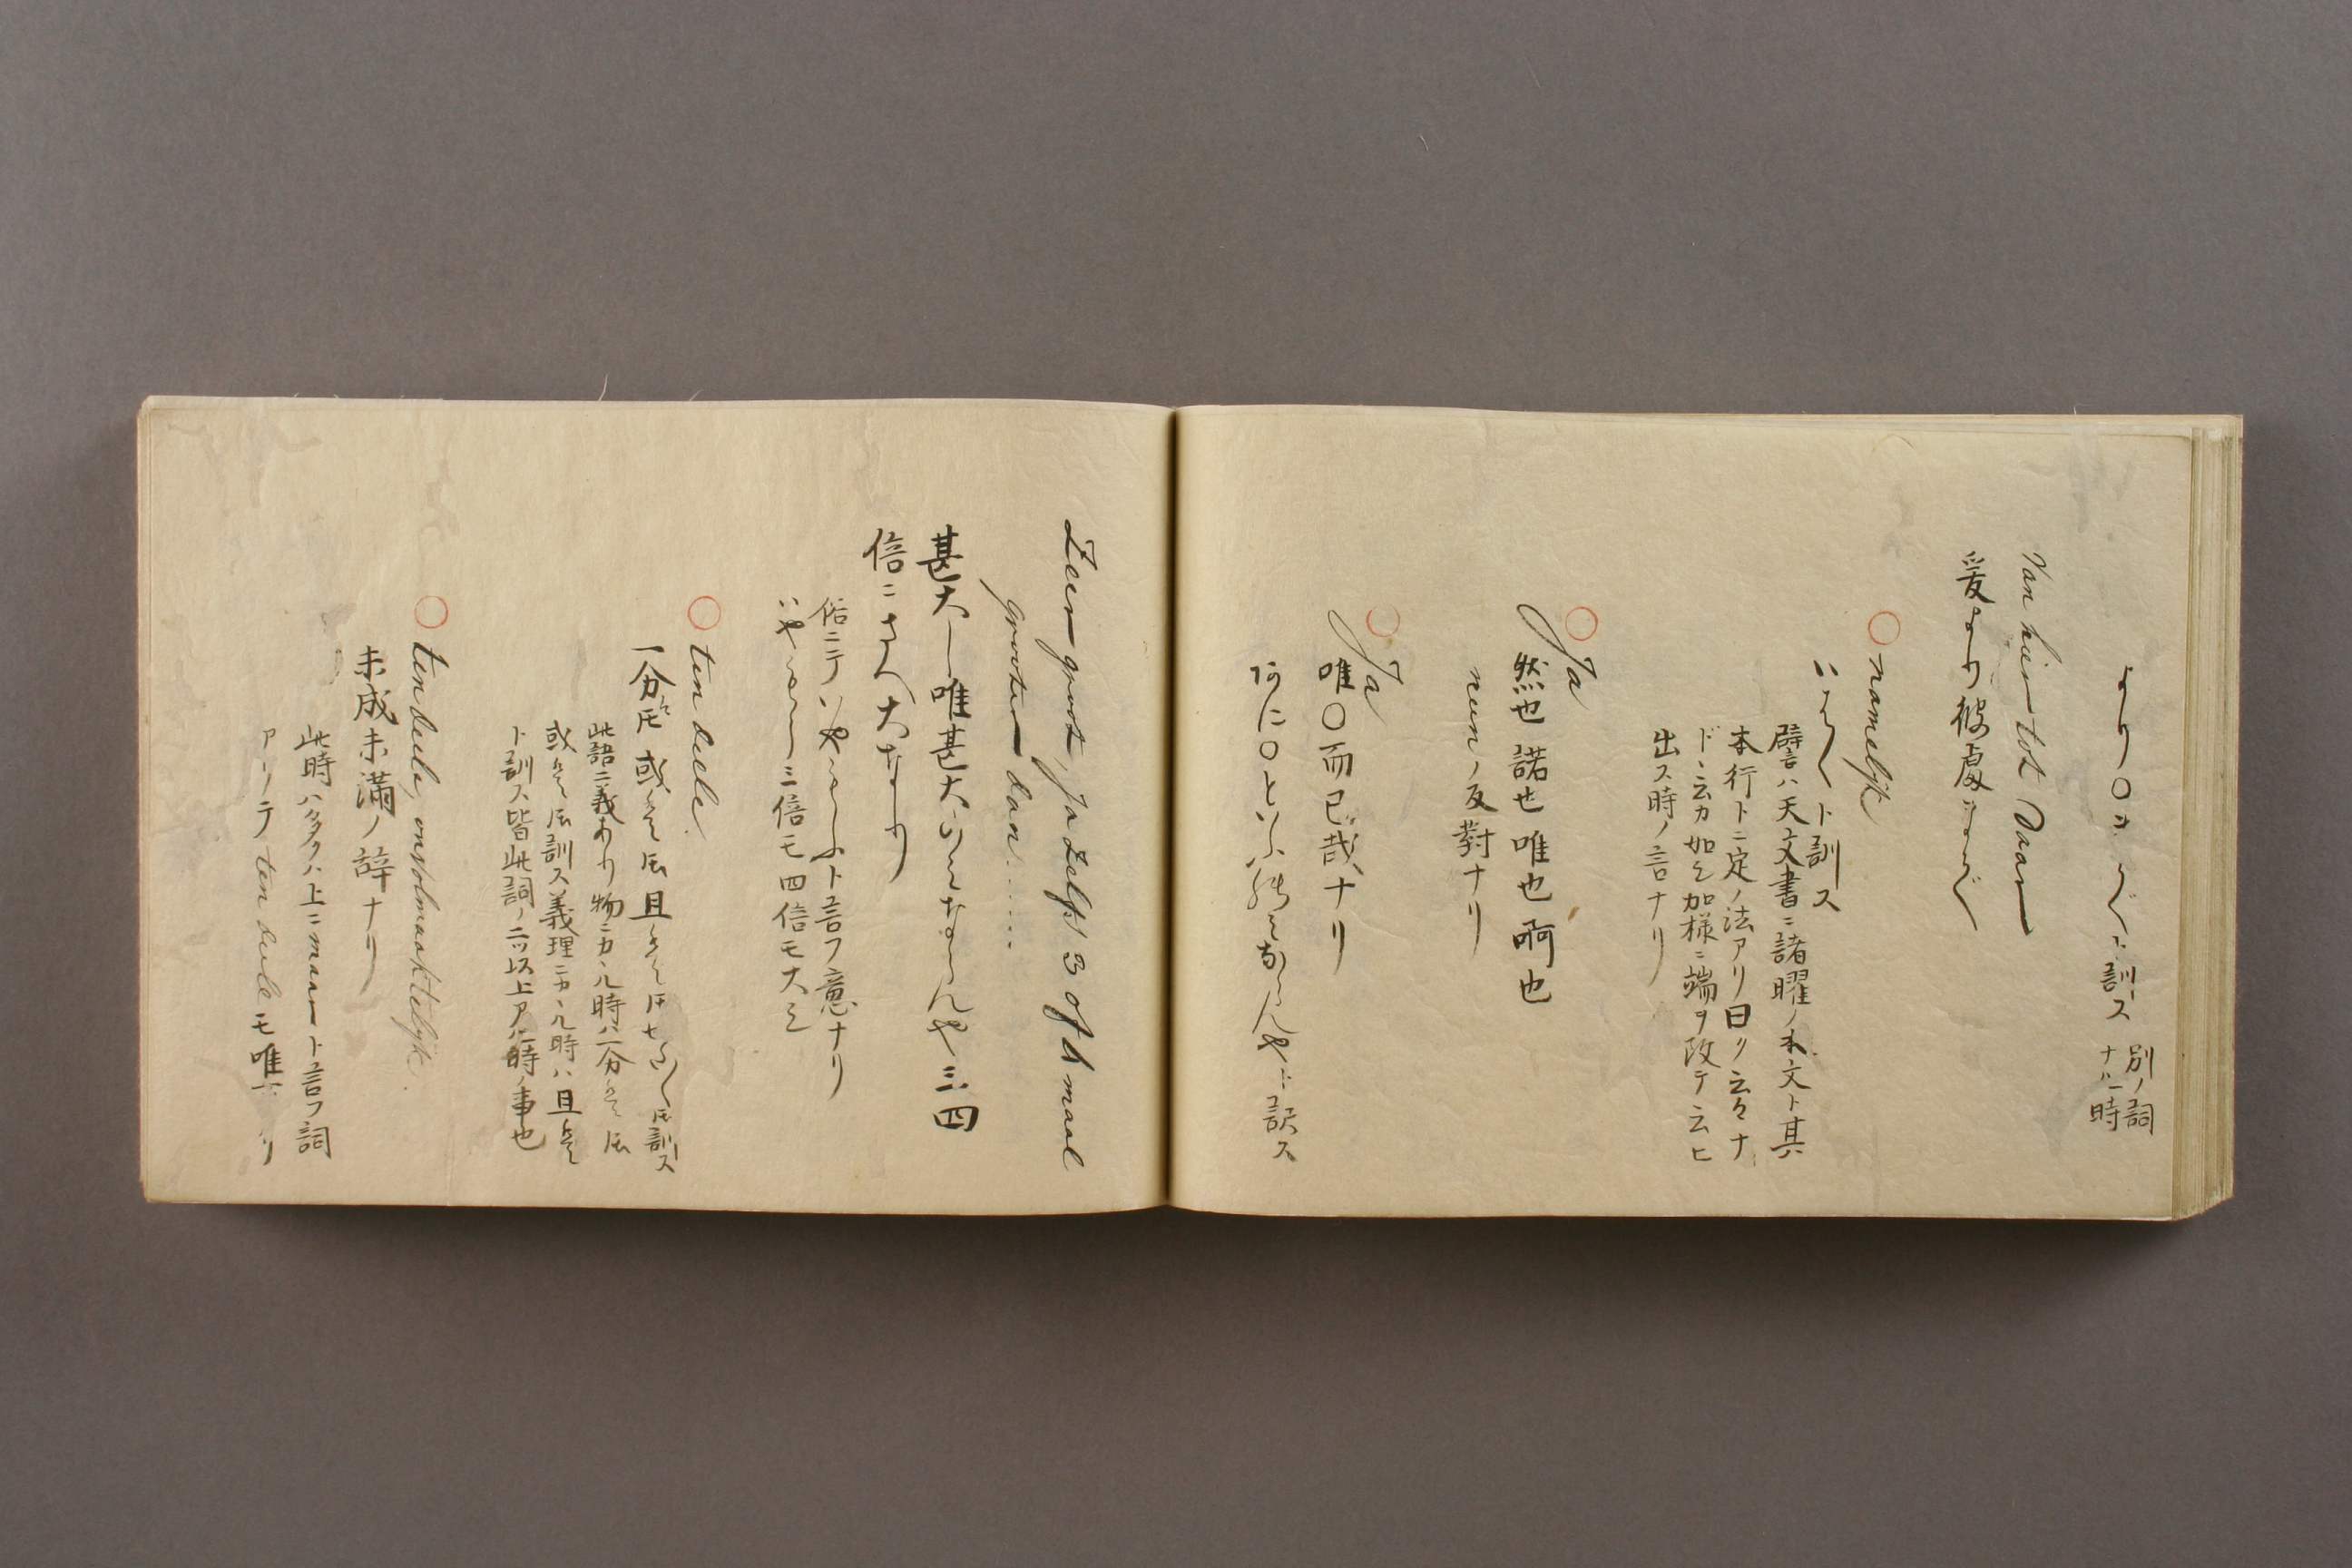 より〇まで ト訓ス 別ノ詞
ナル時
Van hier tot Daar
爰より彼處まで
〇namelijk
いはく ト訓ス
譬ハ天文書ニ諸曜ノ本文ト其
本行トニ定ノ法アリ曰ク云々ナ
ドヽ云カ如シ加様ニ端ヲ改テ云ヒ
出ス時ノ言ナリ
〇Ja
然也 諾也 唯也 啊也
neen ノ反對ナリ
〇Ja
唯〇而已哉ナリ
に〇といふ ならんや ト訳ス
Zeer groot, ja zelfs 3 of 4 maal
grooter dan......
甚大し唯甚大のみならんや三四
倍ニさへ大なり
俗ニテ ト言フ意ナリ
三倍モ四倍モ大ミ
〇ten deele.
一分 或 且 訓ス
此語二義あり物ニカヽル時ハ一分
或 訓ス義理ニカヽル時ハ且
ト訓ス皆此詞ノ二ツ以上アル時ノ事也
〇ten deele, onvolmaaktelijk.
未成未滿ノ辞ナリ
此時ハ多クハ上ニ maar ト言フ詞
アリテ ten deele モ唯一